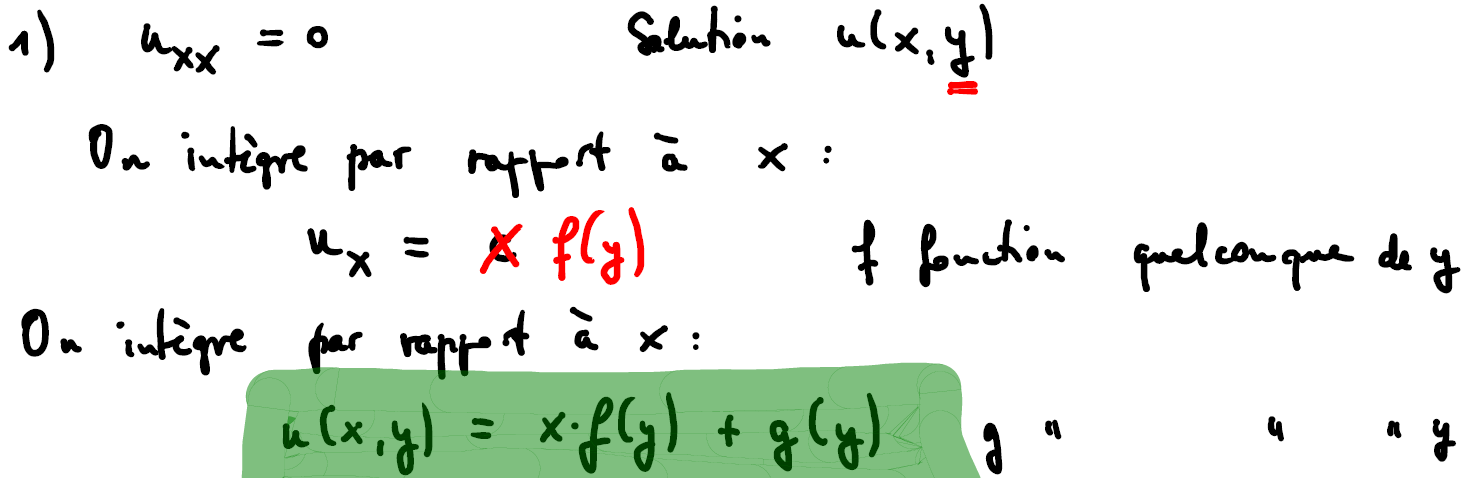 1) u_xx = 0 Solution u(x, y)
On intègre par rapport à x :
u_x = f(y) f fonction quelconque de y
On intègre par rapport à x :
u(x,y) = x·f(y) + g(y) g " " " y